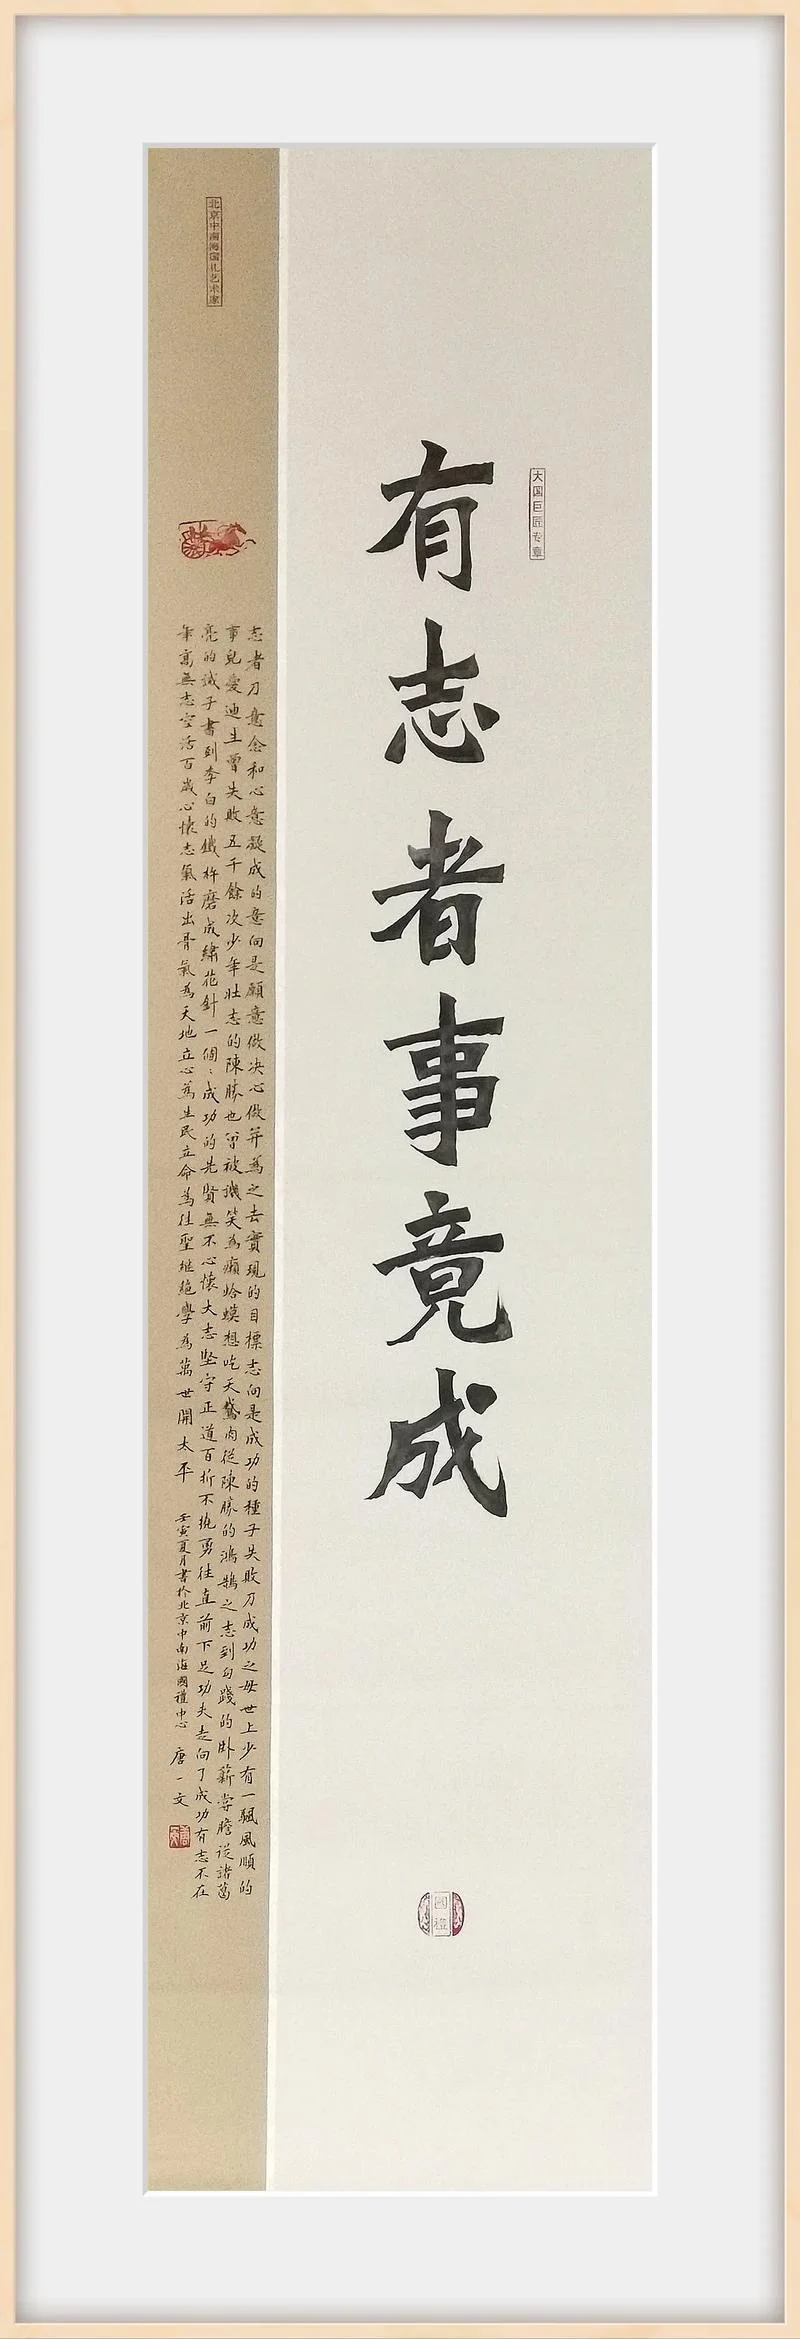 大国巨匠专章
有志者事竟成
國禮
北京中南海国礼艺术家
志者乃意念和心意凝成的意向是願意做决心做并為之去實現的目標志向是成功的種子失敗乃成功之母世上少有一颿風順的
事兒愛迪生曾失敗五千餘次少年壯志的陳勝也曾被譏笑為癩蛤蟆想吃天鵝肉從陳勝的鴻鵠之志到勾踐的卧薪嘗膽從諸葛
亮的誡子書到李白的鐵杵磨成繡花針一個個成功的先賢無不心懷大志堅守正道百折不撓勇往直前下足功夫走向了成功有志不在
年高無志空活百歲心懷志氣活出骨氣為天地立心為生民立命為往聖繼絕學為萬世開太平
壬寅夏月書於北京中南海國禮中心 唐一文